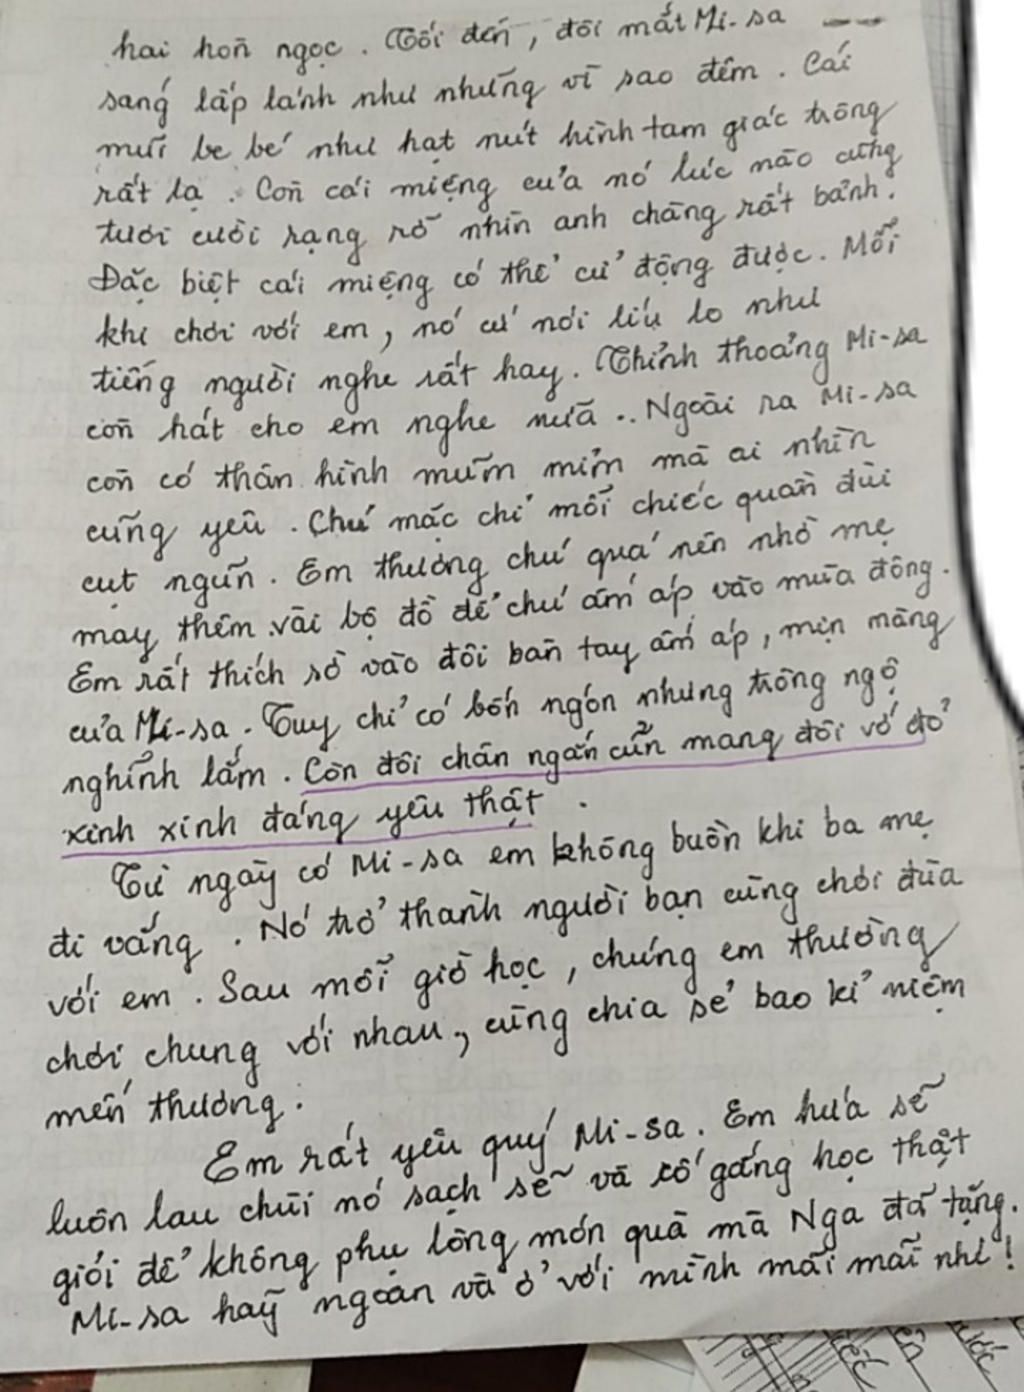 hai hòn ngọc. Tối đến, đôi mắt Mi-sa
sáng lấp lánh như những vì sao đêm. Cái
mũi be bé như hạt nút hình tam giác trông
rất lạ. Còn cái miệng của nó lúc nào cũng
tươi cười rạng rỡ nhìn anh chàng rất bảnh.
Đặc biệt cái miệng có thể cử động được. Mỗi
khi chơi với em, nó cứ nói líu lo như
tiếng người nghe rất hay. Thỉnh thoảng Mi-sa
còn hát cho em nghe nữa.. Ngoài ra Mi-sa
còn có thân hình mũm mỉm mà ai nhìn
cũng yêu. Chú mặc chỉ mỗi chiếc quần đùi
cụt ngủn. Em thương chú quá nên nhờ mẹ
may thêm vài bộ đồ để chú ấm áp vào mùa đông.
Em rất thích sờ vào đôi bàn tay ấm áp, mịn màng
của Mi-sa. Tuy chỉ có bốn ngón nhưng trông ngộ
nghĩnh lắm. Còn đôi chân ngắn củn mang đôi vớ đỏ
xinh xinh đáng yêu thật.
Từ ngày có Mi-sa em không buồn khi ba mẹ
đi vắng. Nó trở thành người bạn cùng chơi đùa
với em. Sau mỗi giờ học, chúng em thường
chơi chung với nhau, cùng chia sẻ bao kỉ niệm
mến thương.
Em rất yêu quý Mi-sa. Em hứa sẽ
luôn lau chùi nó sạch sẽ và cố gắng học thật
giỏi để không phụ lòng món quà mà Nga đã tặng.
Mi-sa hãy ngoan và ở với mình mãi mãi nhé!